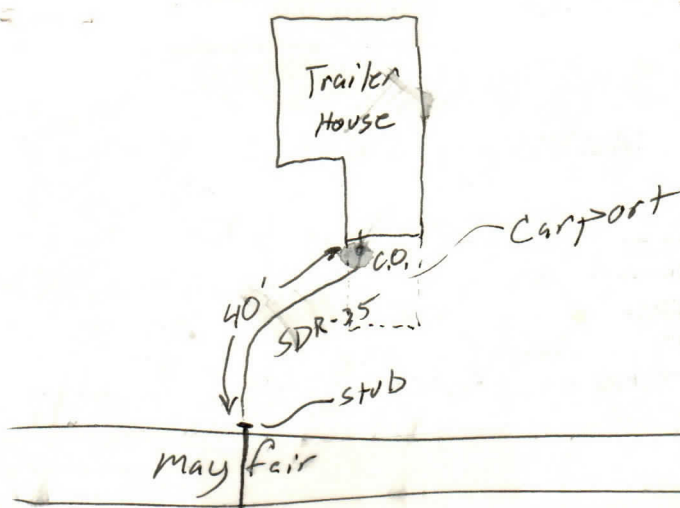 Trailer
House
Carport
C.O.
40'
SDR-35
stub
Mayfair